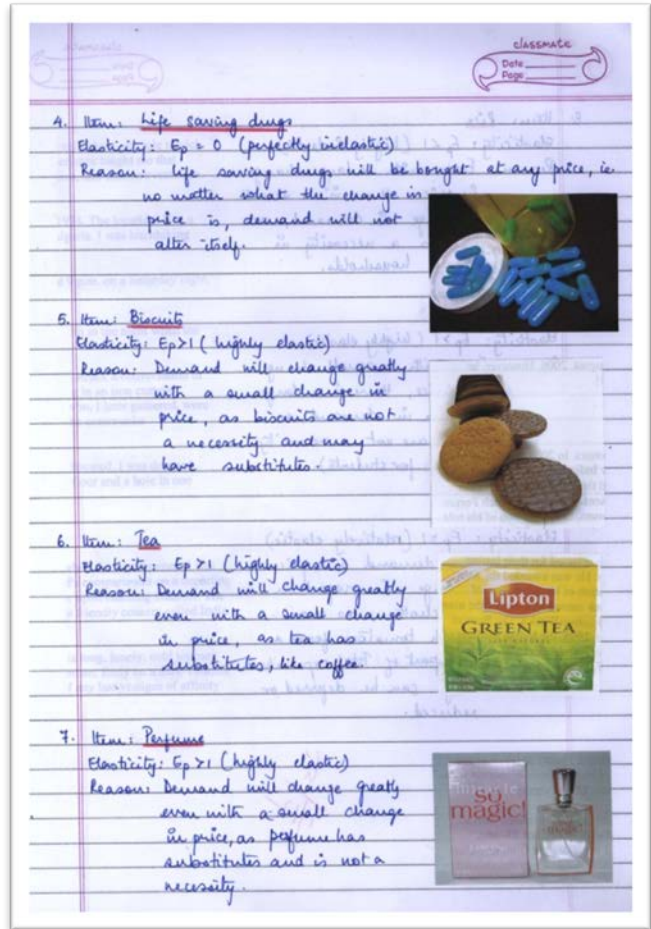 classmate
Date
Page
4. Item: Life saving drugs
Elasticity: Ep = 0 (perfectly inelastic)
Reason: life saving drugs will be bought at any price, ie.
no matter what the change in
price is, demand will not
alter itself.
5. Item: Biscuits
Elasticity: Ep>1 (highly elastic)
Reason: Demand will change greatly
with a small change in
price, as biscuits are not
a necessity and may
have substitutes.
6. Item: Tea
Elasticity: Ep >1 (highly elastic)
Reason: Demand will change greatly
even with a small change
in price, as tea has
substitutes, like coffee.
Lipton
GREEN TEA
7. Item: Perfume
Elasticity: Ep >1 (highly elastic)
Reason: Demand will change greatly
even with a small change
in price, as perfume has
substitutes and is not a
necessity.
so
magic!